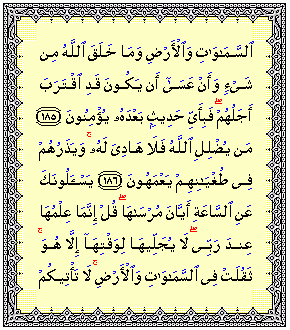 ٱلسَّمَٰوَٰتِ وَٱلْأَرْضِ وَمَا خَلَقَ ٱللَّهُ مِن
شَىْءٍ وَأَنْ عَسَىٰٓ أَن يَكُونَ قَدِ ٱقْتَرَبَ
أَجَلُهُمْ ۖ فَبِأَىِّ حَدِيثٍۭ بَعْدَهُۥ يُؤْمِنُونَ ١٨٥
مَن يُضْلِلِ ٱللَّهُ فَلَا هَادِىَ لَهُۥ ۚ وَيَذَرُهُمْ
فِى طُغْيَٰنِهِمْ يَعْمَهُونَ ١٨٦ يَسْـَٔلُونَكَ
عَنِ ٱلسَّاعَةِ أَيَّانَ مُرْسَىٰهَا ۖ قُلْ إِنَّمَا عِلْمُهَا
عِندَ رَبِّى ۖ لَا يُجَلِّيهَا لِوَقْتِهَآ إِلَّا هُوَ ۚ
ثَقُلَتْ فِى ٱلسَّمَٰوَٰتِ وَٱلْأَرْضِ ۚ لَا تَأْتِيكُمْ